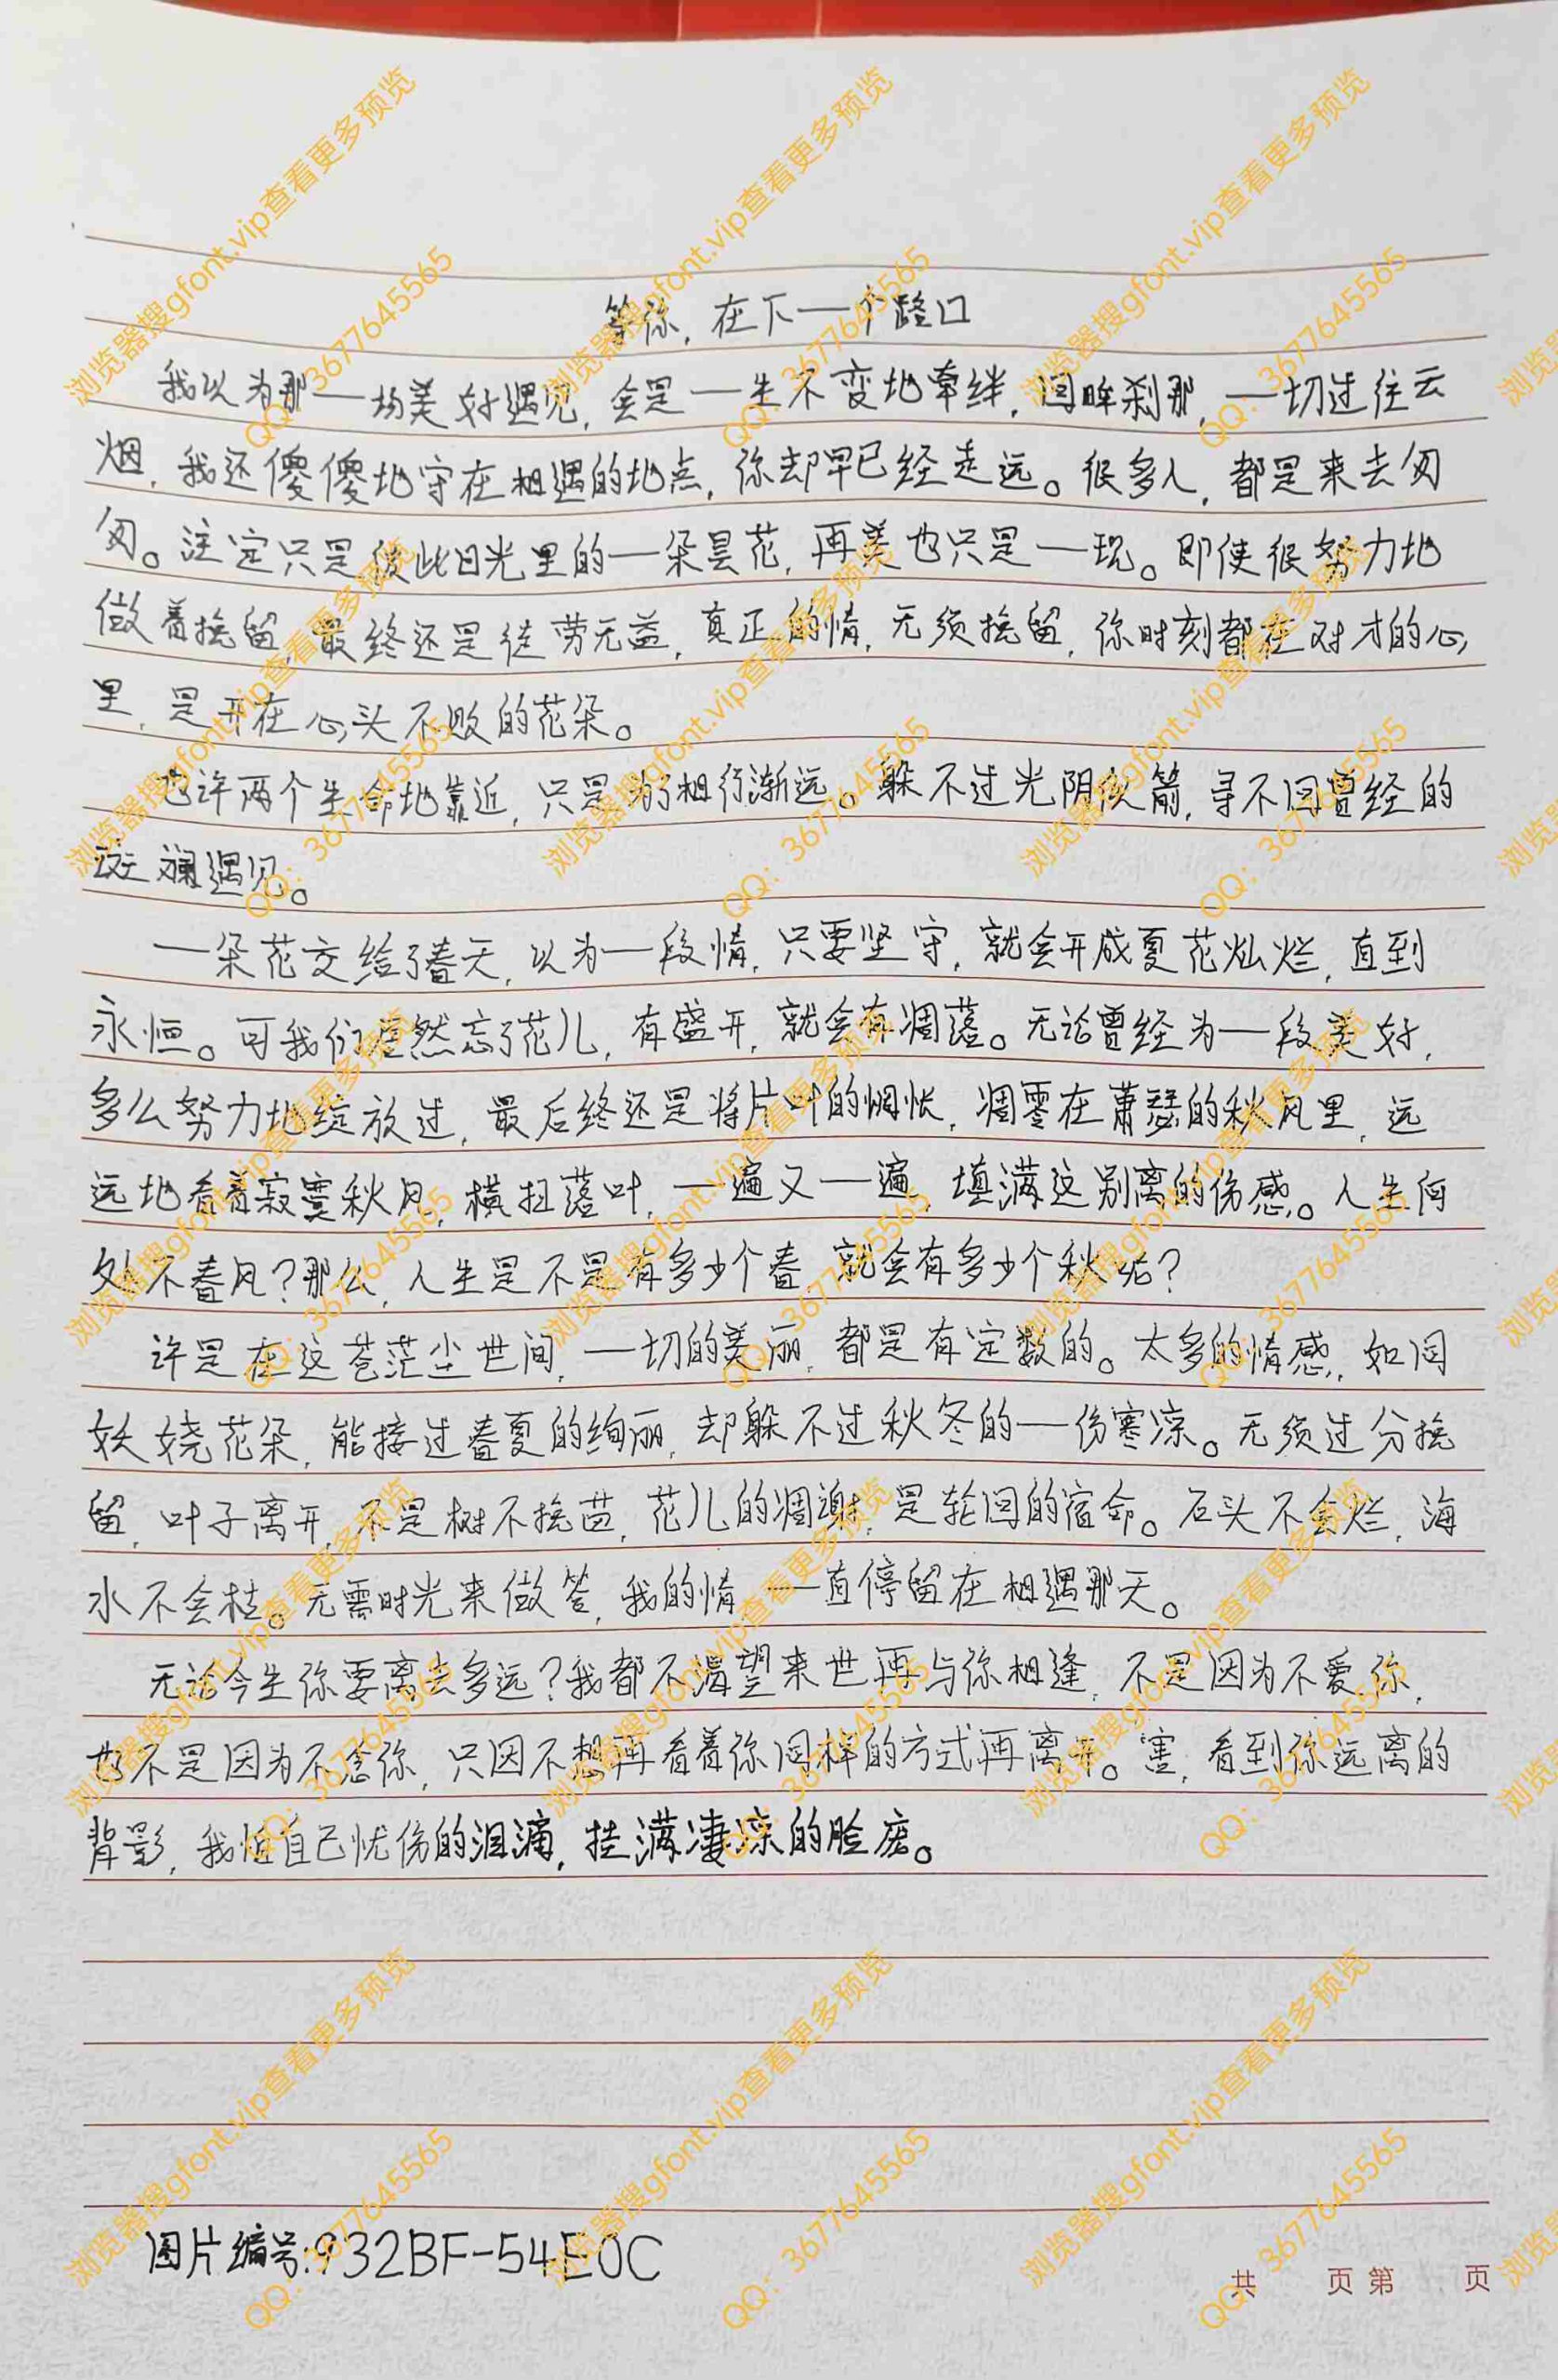 等你，在下一个路口
我以为那一场美好遇见，会是一生不变地牵绊，回眸刹那，一切过往云
烟，我还傻傻地守在相遇的地点，你却早已经走远。很多人，都是来去匆
匆。注定只是彼此目光里的一朵昙花，再美也只是一现。即使很努力地
做着挽留，最终还是徒劳无益，真正的情，无须挽留，你时刻都在对才的心
里，是开在心头不败的花朵。
也许两个生命地靠近，只是为了相行渐远。躲不过光阴似箭，寻不回曾经的
斑斓遇见。
一朵花交给了春天，以为一段情，只要坚守，就会开成夏花灿烂，直到
永恒。可我们居然忘了花儿，有盛开，就会有凋落。无论曾经为一段美好，
多么努力地绽放过，最后终还是将片叶的惆怅，凋零在萧瑟的秋风里，远
远地看着寂寞秋风，横扫落叶，一遍又一遍，填满这别离的伤感。人生何
处不春风？那么，人生是不是有多少个春，就会有多少个秋呢？
许是在这苍茫尘世间，一切的美丽，都是有定数的。太多的情感，如同
妖娆花朵，能接过春夏的绚丽，却躲不过秋冬的一伤寒凉。无须过分挽
留，叶子离开，不是树不挽留，花儿的凋谢，是轮回的宿命。石头不会烂，海
水不会枯。无需时光来做答，我的情，一直停留在相遇那天。
无论今生你要离去多远？我都不渴望来世再与你相逢，不是因为不爱你，
也不是因为不念你，只因不想再看着你同样的方式再离开。害，看到你远离的
背影，我怕自己忧伤的泪滴，挂满凄凉的脸庞。
图片编号:932BF-54E0C
共 页 第 页
浏览器搜gfont.vip查看更多预览
QQ：3677645565